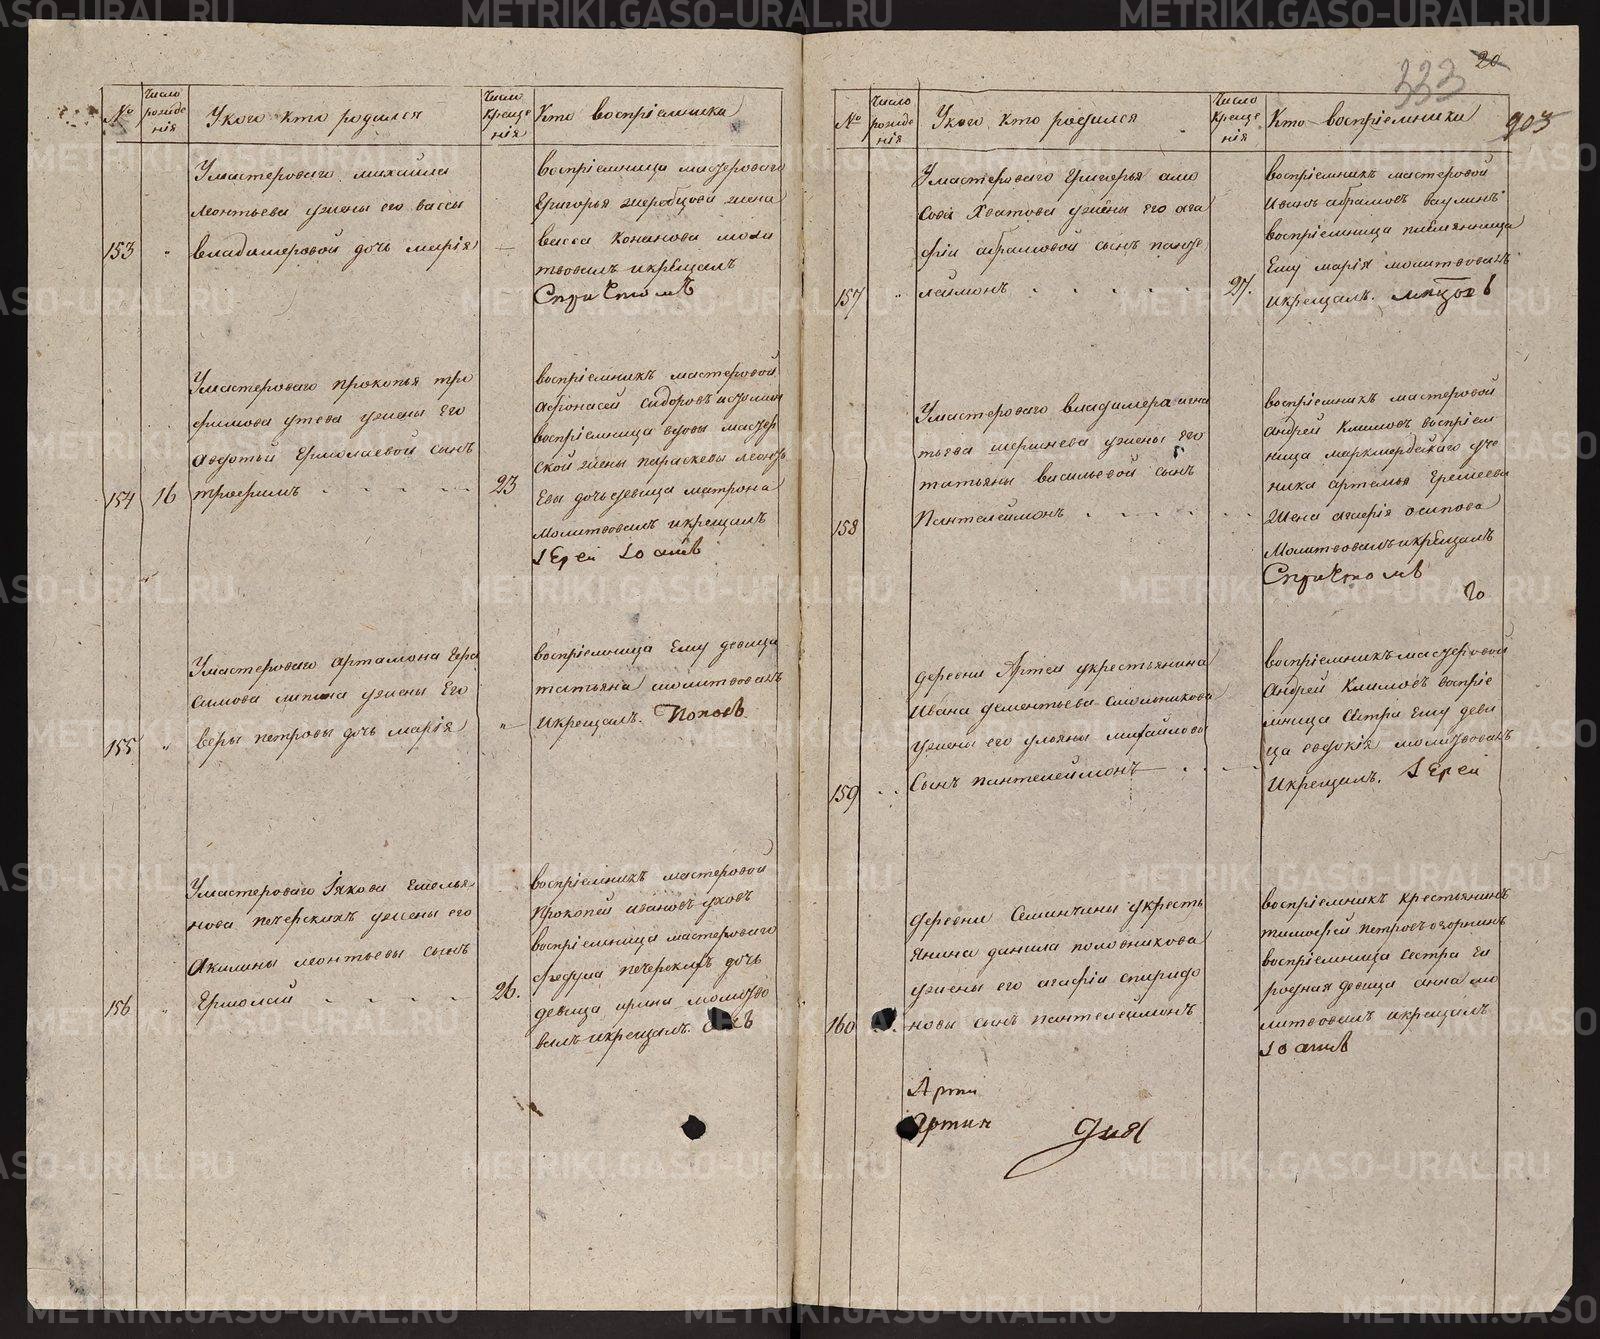 №
Число рожде нія
У кого кто родился
Число креще нія
Кто воспріемники
Умастероваго михайла
леонтьева ужены его вассы
153 " владимеровой дочь марія
воспріемница мастероваго
Григорья жеребцова жена
васса Кононова моли
твовалъ икрещалъ
Спричтомъ
Умастероваго прокопья тро
фимова утева ужены Его
авдотьи Ермолаевой сынъ
154 16 трофимъ 23
воспріемникъ мастеровой
афонасей сидоровъ
воспріемница вдовы мастер
ской жены параскевы леонть
Евы дочь девица матрона
Молитвовалъ икрещалъ
Іерей Іоаннъ
Умастероваго артамона Гера
симова ужены Его
155 " веры петровы дочь марія "
воспріемница Ему девица
татьяна молитвовалъ
икрещалъ. Поповъ
Умастероваго Іякова Емелья
нова печерскихъ ужены его
Акилины леонтьевы сынъ
156 " Ермолай 26.
воспріемникъ мастеровой
Прокопей ивановъ уховъ
воспріемница мастероваго
федула печерскихъ дочь
девица ирина молитво
валъ икрещалъ.
333
20
903
№
Число рожде нія
У кого кто родился
Число креще нія
Кто воспріемники
Умастероваго Григорья амо
сова Хватова ужены его ага
фіи абрамовой сынъ панте
157 " леимонъ 27.
воспріемникъ мастеровой
Иванъ абрамовъ ваулинъ
воспріемница племянница
Ему марія молитвовалъ
икрещалъ.
Умастероваго владимера игна
тьева ужены его
татьяны васильевой сынъ
158 Пантелеймонъ
воспріемникъ мастеровой
андрей Климовъ воспріем
ница уче
ника артемья Еремеева
Жена агафія осипова
Молитвовалъ икрещалъ
Спричтомъ
деревни Артей укрестьянина
Ивана дементьева Смольникова
ужены его ульяны михайловой
159 Сынъ пантелеймонъ
воспріемникъ мастеровой
андрей Климовъ воспріе
мница сестра Ему деви
ца евдокія молитвовалъ
Икрещалъ. Іерей
деревни Сенинчины укресть
янина данила половникова
ужены его агафіи спиридо
160 нова сынъ пантелеймонъ
воспріемникъ крестьянинъ
тимофей петровъ
воспріемница сестра Ея
родная девица анна мо
литвовалъ икрещалъ
Іоаннъ
Арти
Артин
METRIKI.GASO-URAL.RU